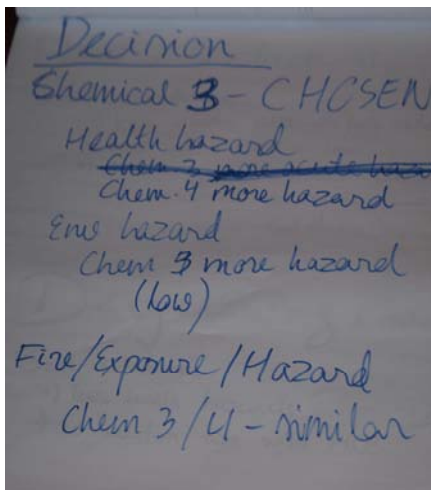 Decision
Chemical 3 - CHOSEN
Health hazard
Chem 3 more acute haza
Chem. 4 more hazard
Env hazard
Chem 3 more hazard
(low)
Fire/Exposure/Hazard
Chem 3/4 - similar